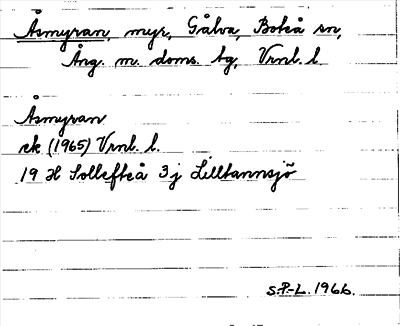 Åsmyran, myr, Gålva, Boteå sn,
Ång. m. doms. bg, Vrnl. l.
Åsmyran
ek (1965) Vrnl. l.
19 H Sollefteå 3j Lilltannsjö
S.P-L. 1966.